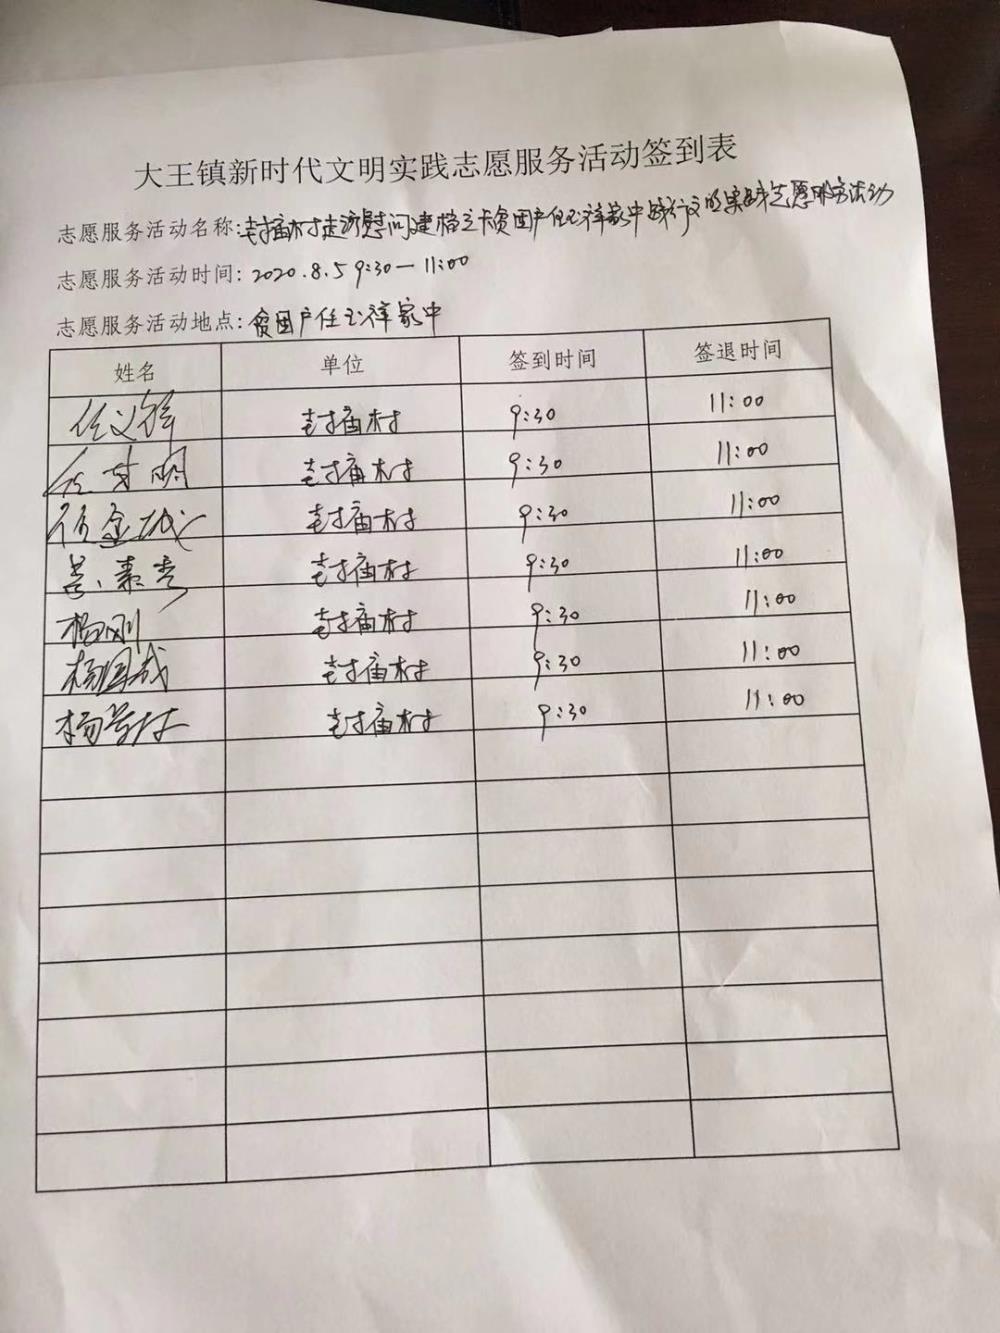 大王镇新时代文明实践志愿服务活动签到表
志愿服务活动名称:封庙村走访慰问建档立卡贫困户任玉祥家中践行文明实践志愿服务活动
志愿服务活动时间: 2020.8.5 9:30—11:00
志愿服务活动地点: 贫困户任玉祥家中
姓名 单位 签到时间 签退时间
封庙村 9:30 11:00
封庙村 9:30 11:00
封庙村 9:30 11:00
封庙村 9:30 11:00
杨刚 封庙村 9:30 11:00
封庙村 9:30 11:00
封庙村 9:30 11:00